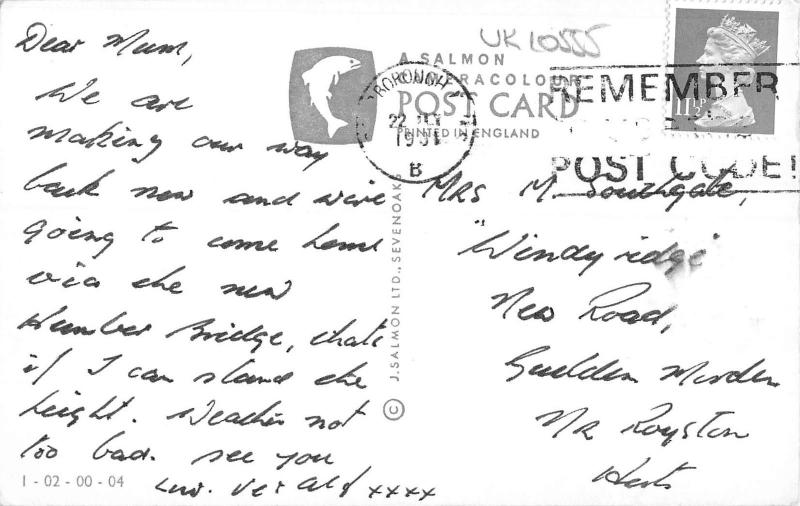 Dear Mum,
We are
making our way
back now and we're
going to come home
via the new
Humber Bridge, thats
if I can stand the
height. Weather not
too bad. see you
1-02-00-04
xxxx
© J. SALMON LTD., SEVENOAKS
UK 10555
A SALMON
CAMERACOLOUR
POST CARD
PRINTED IN ENGLAND
BOROUGH
22
1981
B
REMEMBER
POST CODE!
11½P
Mrs M. Southgate,
"Windy ridge"
New Road,
Guilden Morden
Nr Royston
Herts